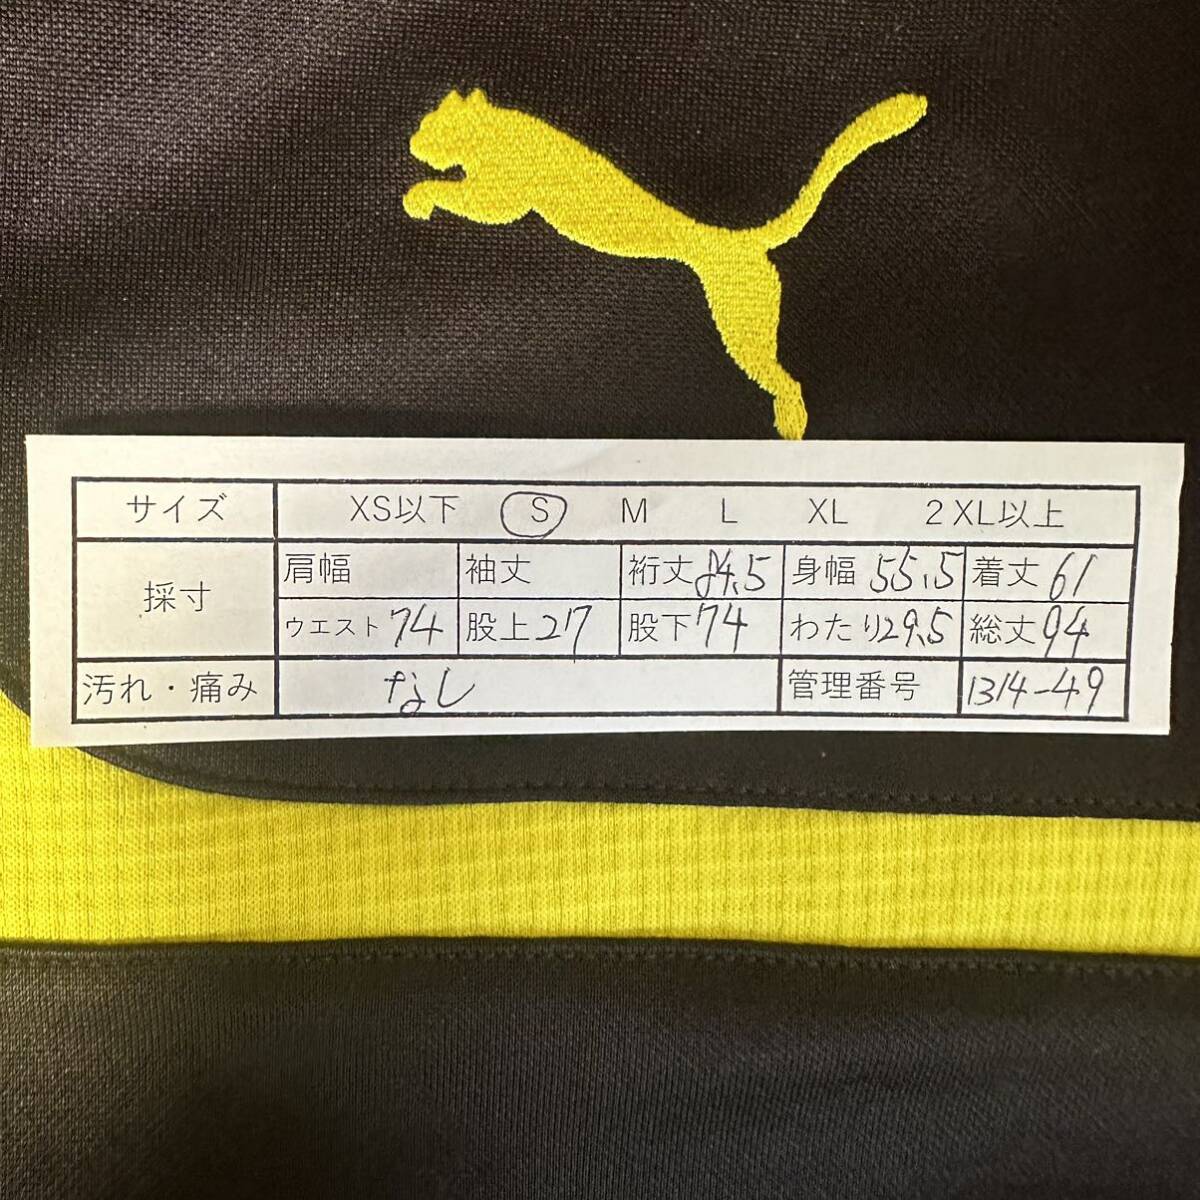 サイズ XS以下 S M L XL 2XL以上
採寸 肩幅 袖丈 裄丈 84.5 身幅 55.5 着丈 61
ウエスト 74 股上 27 股下 74 わたり 29.5 総丈 94
汚れ・痛み なし 管理番号 1314-49